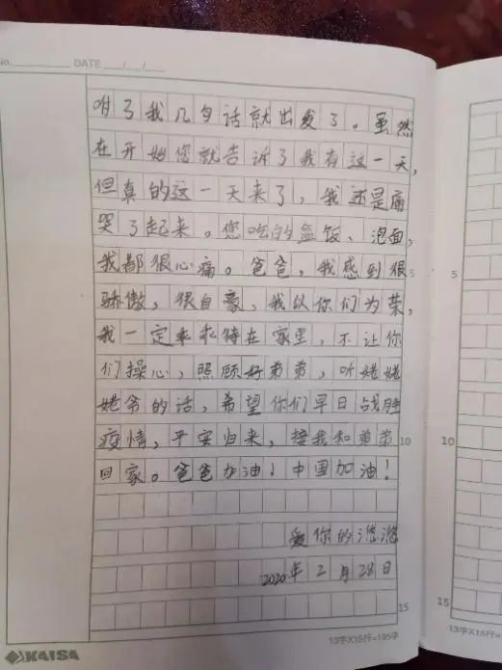 No.
DATE / /
咐了我几句话就出发了。虽然
在开始您就告诉了我有这一天,
但真的这一天来了,我还是痛
哭了起来。您吃的盒饭、泡面,
我都很心痛。爸爸,我感到很
骄傲,很自豪,我以你们为荣,
我一定乖乖待在家里,不让你
们操心,照顾好弟弟,听姥姥
姥爷的话,希望你们早日战胜
疫情,平安归来,接我和弟弟
回家。爸爸加油!中国加油!
爱你的滢滢
2020年2月28日
5
10
15
13字X15行=195字
KAISA
5
10
15